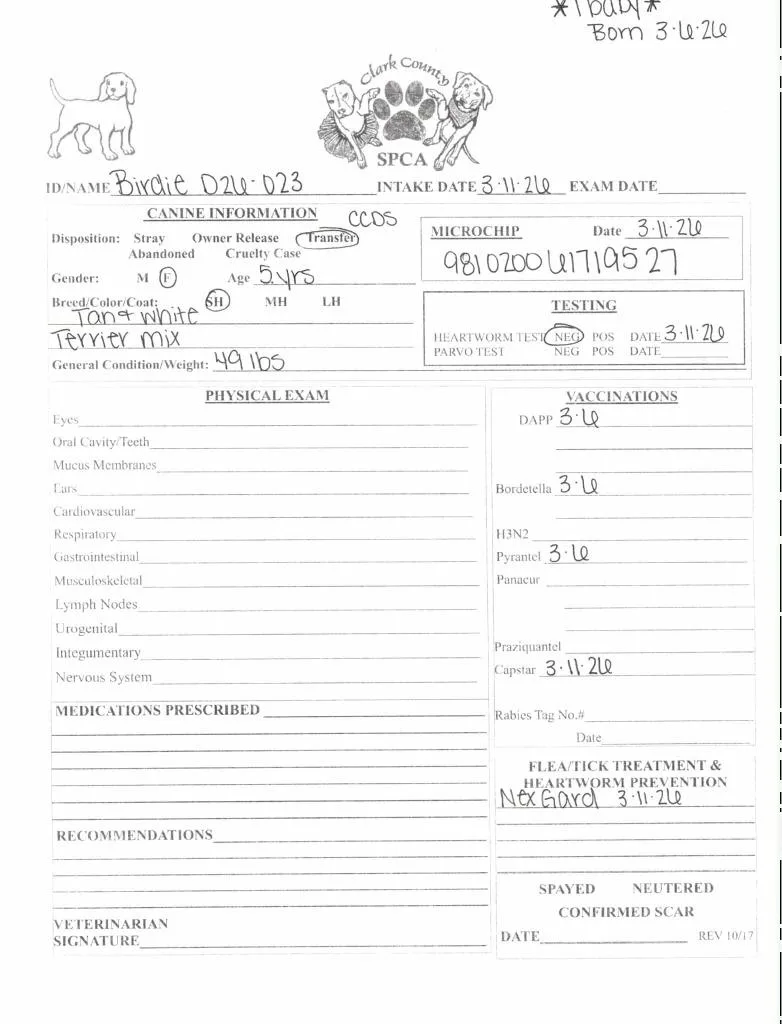 *1 baby*
Born 3·6·26
Clark County
SPCA
ID/NAME Birdie D26-023 INTAKE DATE 3·11·26 EXAM DATE
CANINE INFORMATION CCDS
Disposition: Stray Owner Release Transfer
Abandoned Cruelty Case
Gender: M F Age 5.yrs
Breed/Color/Coat: SH MH LH
Tan & white
Terrier mix
General Condition/Weight: 49 lbs
MICROCHIP Date 3·11·26
981020061719527
TESTING
HEARTWORM TEST NEG POS DATE 3·11·26
PARVO TEST NEG POS DATE
PHYSICAL EXAM
Eyes
Oral Cavity/Teeth
Mucus Membranes
Ears
Cardiovascular
Respiratory
Gastrointestinal
Musculoskeletal
Lymph Nodes
Urogenital
Integumentary
Nervous System
MEDICATIONS PRESCRIBED
RECOMMENDATIONS
VETERINARIAN
SIGNATURE
VACCINATIONS
DAPP 3·6
Bordetella 3·6
H3N2
Pyrantel 3·6
Panacur
Praziquantel
Capstar 3·11·26
Rabies Tag No.#
Date
FLEA/TICK TREATMENT &
HEARTWORM PREVENTION
NexGard 3·11·26
SPAYED NEUTERED
CONFIRMED SCAR
DATE REV 10/17